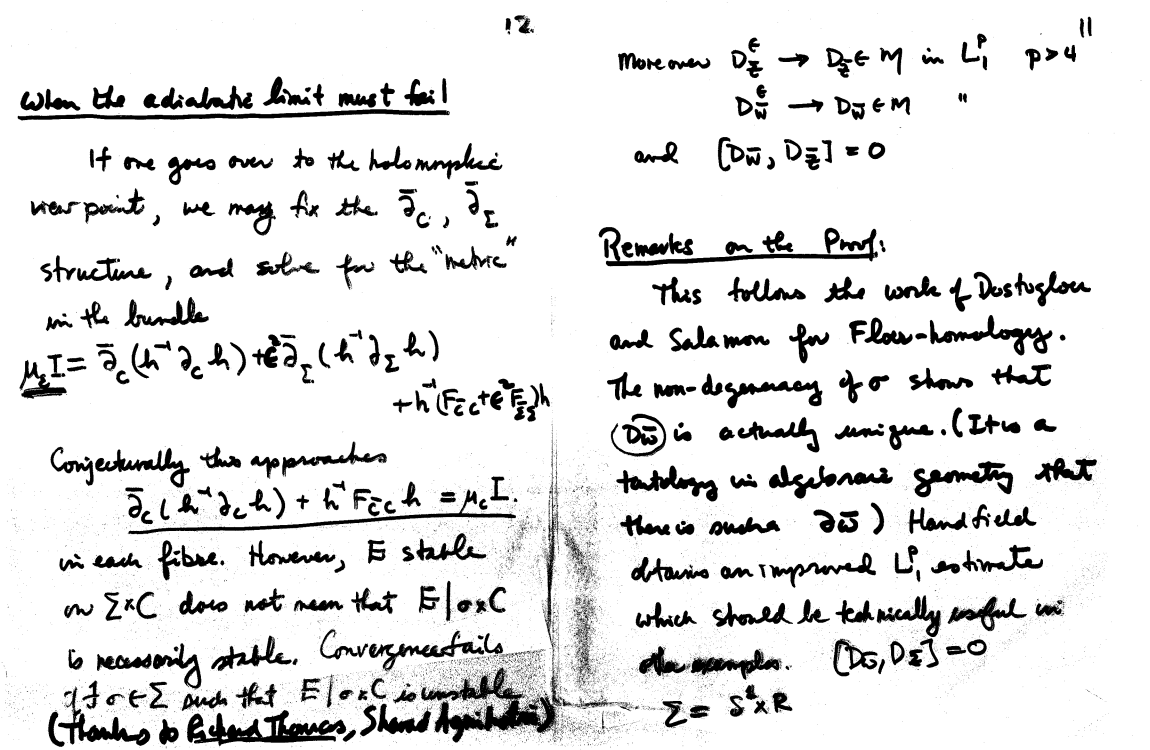 12.
When the adiabatic limit must fail
If one goes over to the holomorphic
view point, we may fix the ∂̄_C, ∂̄_Σ
structure, and solve for the "metric"
in the bundle
μ_ε I = ∂̄_C (h⁻¹ ∂_C h) + ε² ∂̄_Σ (h⁻¹ ∂_Σ h)
+ h⁻¹ (F_{C̄C} + ε² F_{Σ̄Σ}) h
Conjecturally this approaches
∂̄_C (h⁻¹ ∂_C h) + h⁻¹ F_{C̄C} h = μ_C I.
in each fibre. However, E stable
on Σ×C does not mean that E|σ×C
is necessarily stable. Convergence fails
if ∃ σ ∈ Σ such that E|σ×C is unstable
(Thanks to Richard Thomas, Sharad Agnihotri)
11
Moreover D^ε_z̄ → D_z̄ ∈ M in L^p_1 p>4
D^ε_w̄ → D_w̄ ∈ M "
and [D_w̄, D_z̄] = 0
Remarks on the Proof:
This follows the work of Dostoglou
and Salamon for Floer-homology.
The non-degeneracy of σ shows that
(D_w̄) is actually unique. (It is a
tautology in algebraic geometry that
there is such a ∂_w̄) Handfield
obtains an improved L^p_1 estimate
which should be technically useful in
other examples. [D_w̄, D_z̄] = 0
Σ = S¹×R